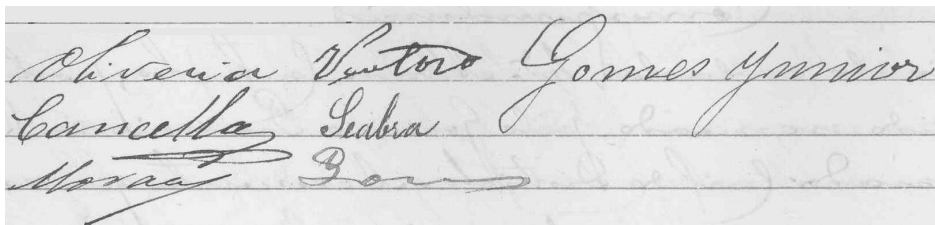 Oliveira Ventoro Gomes Junior
Cancella Seabra
Moraes